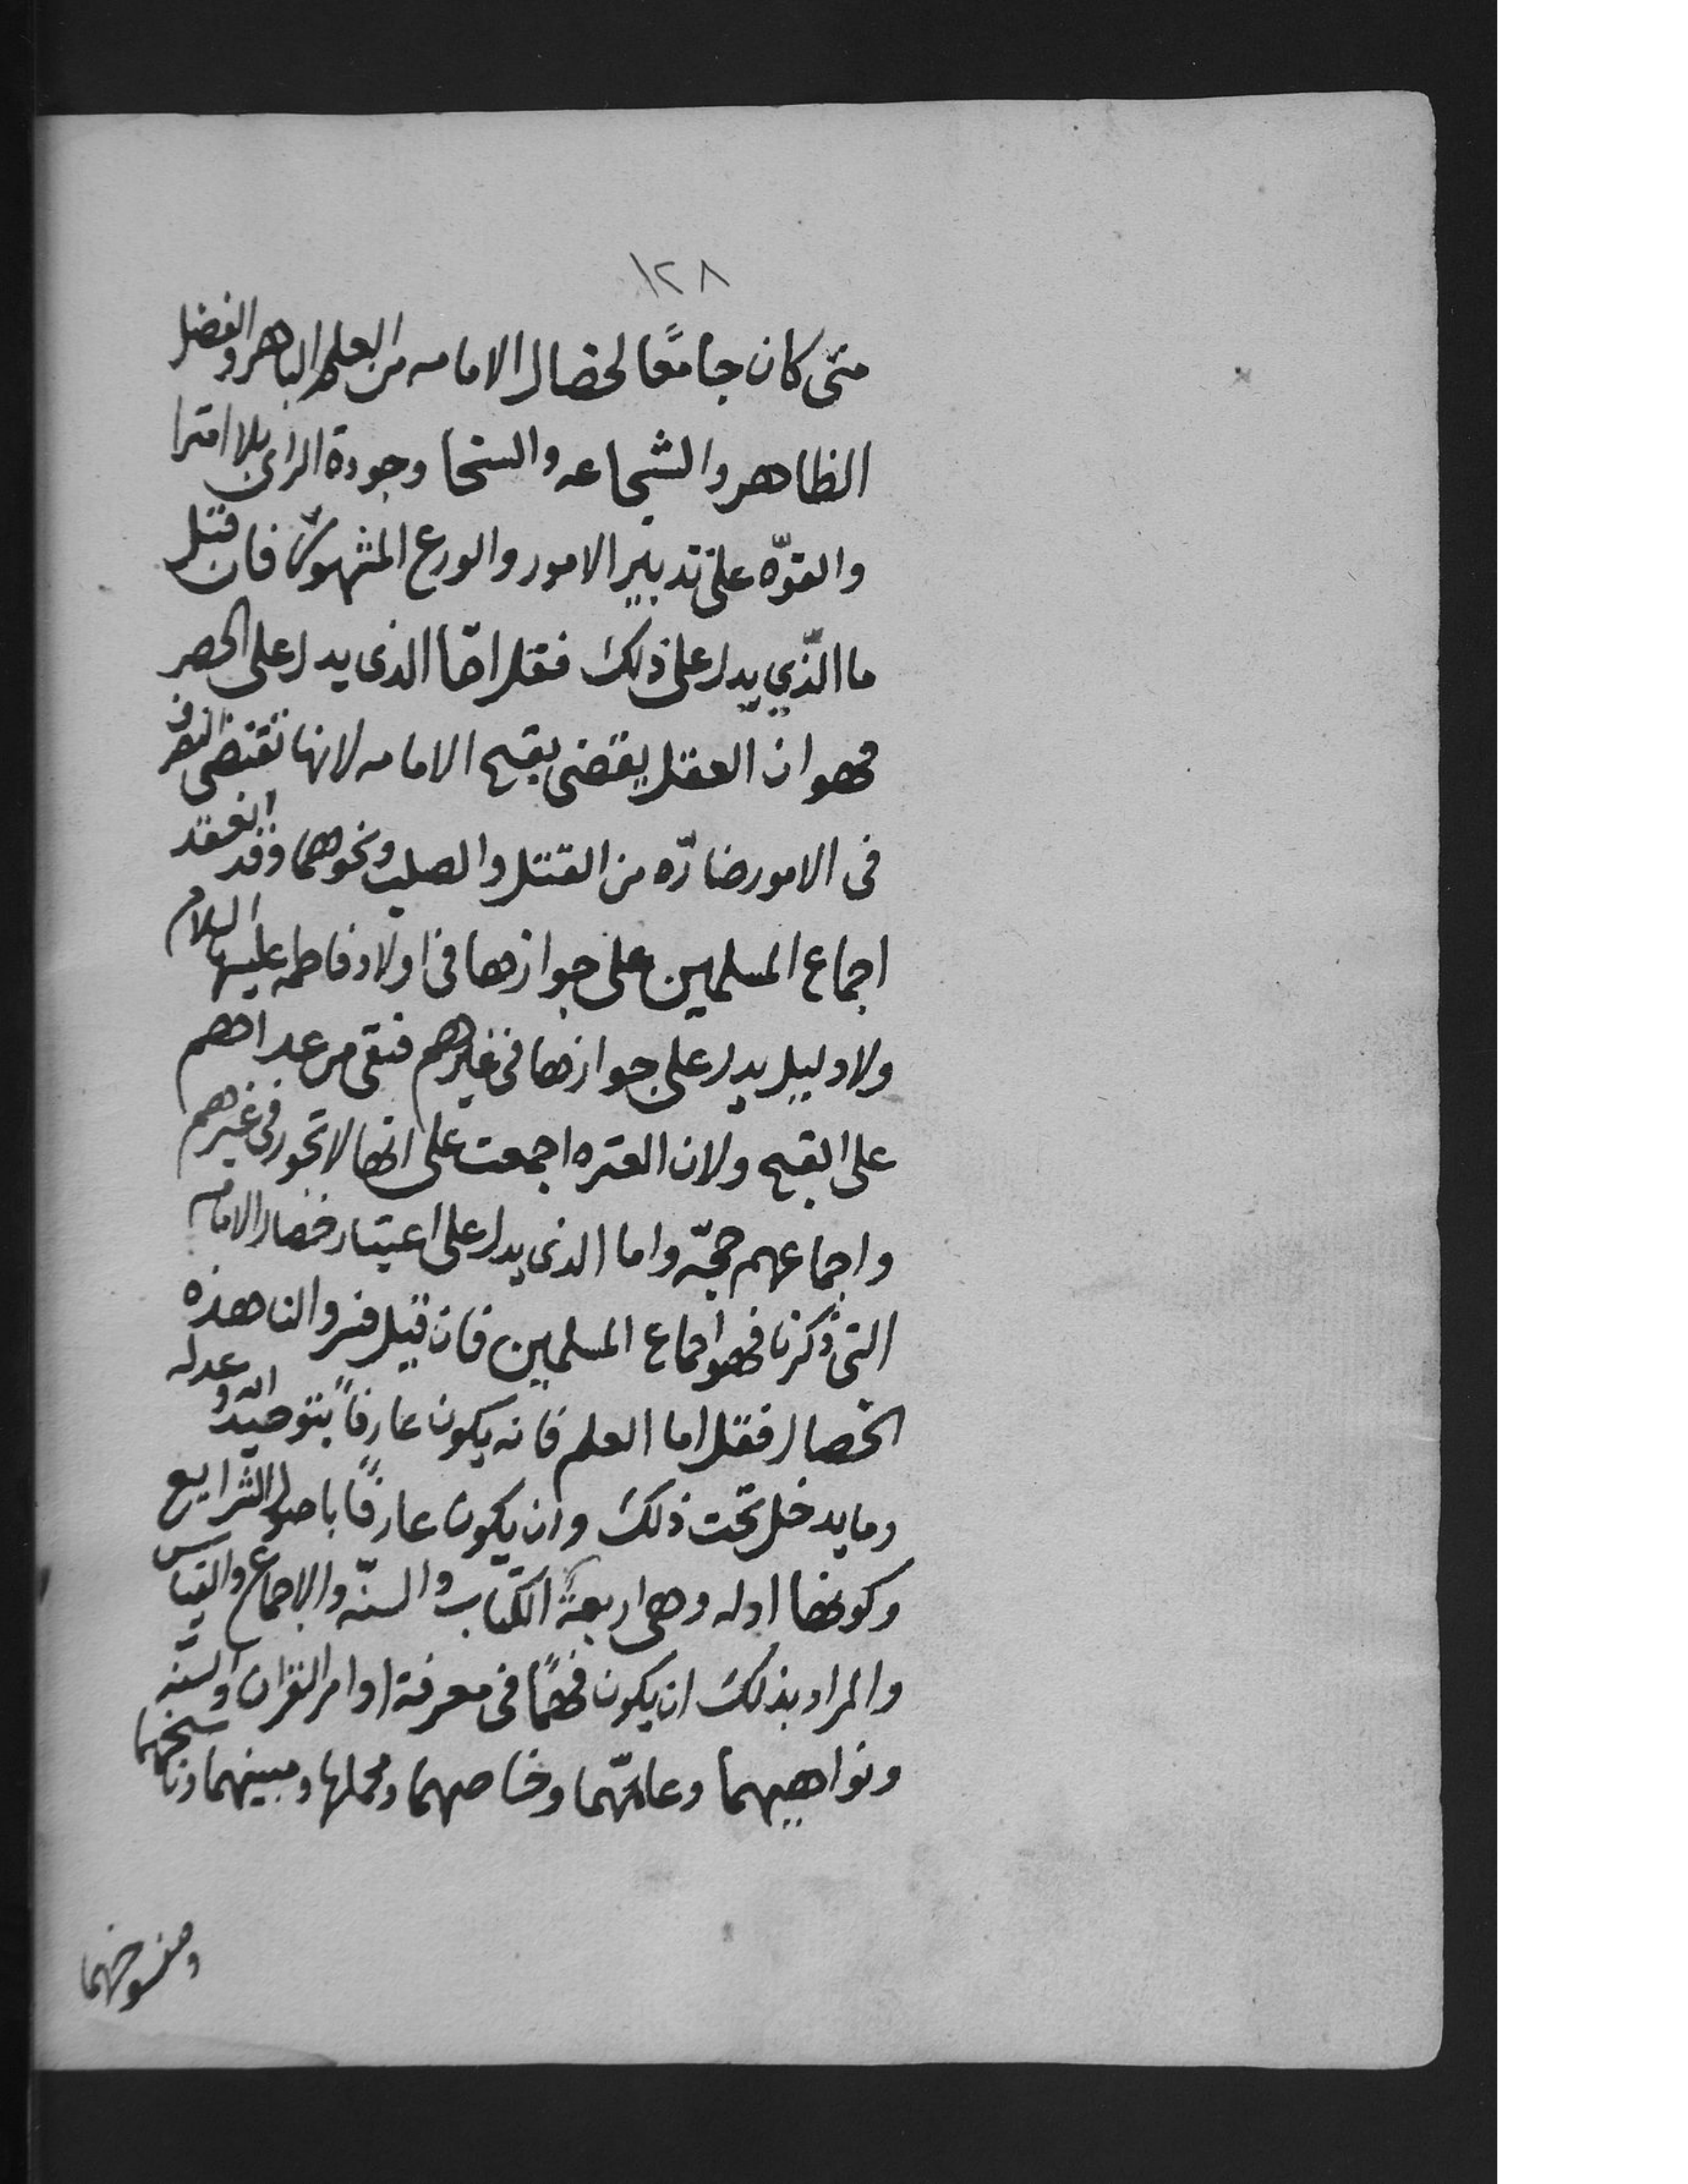 ١٢٨
متى كان جامعًا لخصال الامامه من العلم الباهر والفضل
الظاهر والشجاعه والسخا وجودة الراى بلا امترا
والقوّه على تدبير الامور والورع المشهور فان قيل
ما الّذي يدل على ذلك فقل امّا الذى يدل على الحصر
فهو ان العقل يقضى بقبح الامامه لانها تقتضى التصرف
فى الامور ضارّه من القتل والصلب ونحوهما وقد انعقد
اجماع المسلمين على جوازها فى اولاد فاطمه عليها السلام
ولا دليل يدل على جوازها فى غيرهم فبقى من عداهم
على القبح ولان العتره اجمعت على انها لا تجوز فى غيرهم
واجماعهم حجّه واما الذى يدل على اعتبار خصال الامامه
التى ذكرنا فهو اجماع المسلمين فان قيل فسروا لنا هذه
الخصال فقل اما العلم فانه يكون عارفاً بتوحيد الله وعدله
وما يدخل تحت ذلك وان يكون عارفًا باصول الشرايع
وكونها ادله وهى اربعة الكتاب والسنّه والاجماع والقياس
والمراد بذلك ان يكون فهمًا فى معرفة اوامر القران والسنّه
ونواهيهما وعامّهما وخاصهما ومجملها ومبينهما وناسخهما
ومنسوخهما